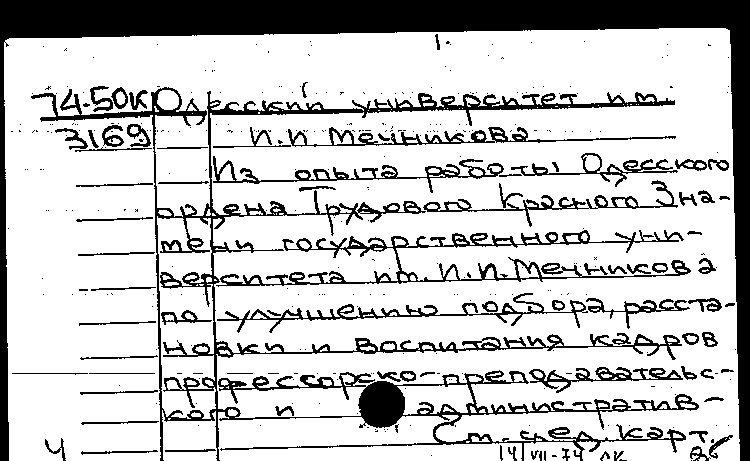 1.
74-50К Одесский университет им.
3169 И.И. Мечникова.
Из опыта работы Одесского
ордена Трудового Красного Зна-
мени государственного уни-
верситета им. И.И. Мечникова
по улучшению подбора, расста-
новки и воспитания кадров
профессорско-преподавательс-
кого и административ-
См. след. карт.
4 14/VII-74